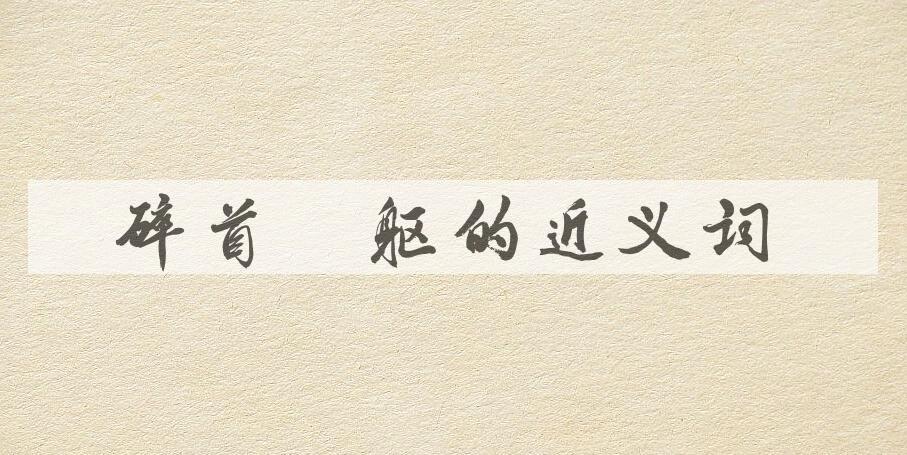 碎首 躯的近义词